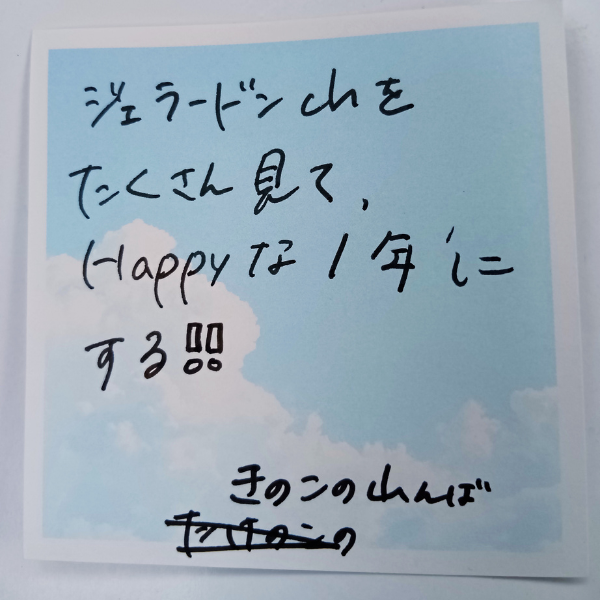 ジェラードンchを
たくさん見て、
Happyな1年に
する!!
きのこのれんば